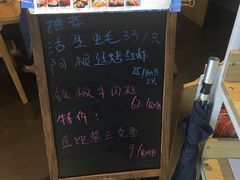 推荐
活生蚝 33/只
阿根廷烤红虾
25/RMB
2只
铁板牛肉粒
62/RMB
特价:
丘比特三文鱼
9/RMB